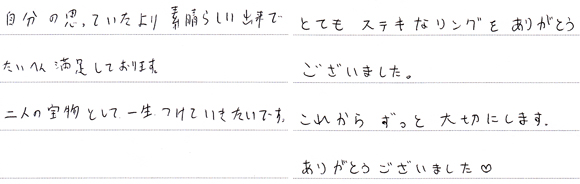 自分の思っていたより素晴らしい出来で
たいへん満足しております。
二人の宝物として一生つけていきたいです。
とてもステキなリングをありがとう
ございました。
これからずっと大切にします.
ありがとうございました♡